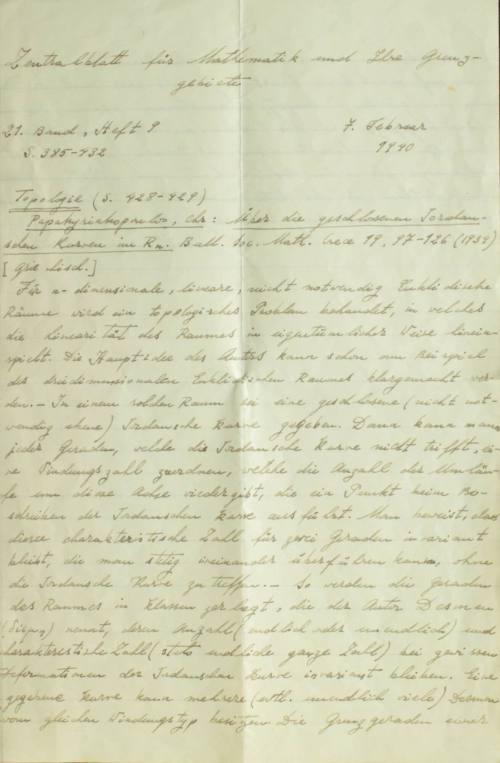 Zentralblatt für Mathematik und Ihre Grenz-
gebiete
21. Band, Heft 9
7. Februar
S. 385-432
1940
Topologie (S. 428-429)
Papakyriakopoulos, Chr: Über die geschlossenen Jordan-
schen Kurven im Rn. Bull. Soc. Math. Grece 19, 97-126 (1939)
[Griechisch.]
Für n-dimensionale, lineare, nicht notwendig Euklidische
Räume wird ein topologisches Problem behandelt, in welches
die Linearität des Raumes in eigentümlicher Weise hinein-
spielt. Die Hauptidee des Autors kann schon am Beispiel
des dreidimensionalen Euklidischen Raumes klargemacht wer-
den. - In einem solchen Raum sei eine geschlossene (nicht not-
wendig ebene) Jordansche Kurve gegeben. Dann kann man
jeder Geraden, welche die Jordansche Kurve nicht trifft, ei-
ne Windungszahl zuordnen, welche die Anzahl der Umläu-
fe um diese Achse wiedergibt, die ein Punkt beim Be-
schreiben der Jordanschen Kurve ausführt. Man beweist, dass
diese charakteristische Zahl für zwei Geraden invariant
bleibt, die man stetig ineinander überführen kann, ohne
die Jordansche Kurve zu treffen. - So werden die Geraden
des Raumes in Klassen zerlegt, die der Autor Desmen
nennt, deren Anzahl (endlich oder unendlich) und
charakteristische Zahl (stets endliche ganze Zahl) bei gewissen
Deformationen der Jordanschen Kurve invariant bleiben. Eine
gegebene Kurve kann mehrere (evtl. unendlich viele) Desmen
vom gleichen Windungstyp besitzen. Die Grenzgeraden einer